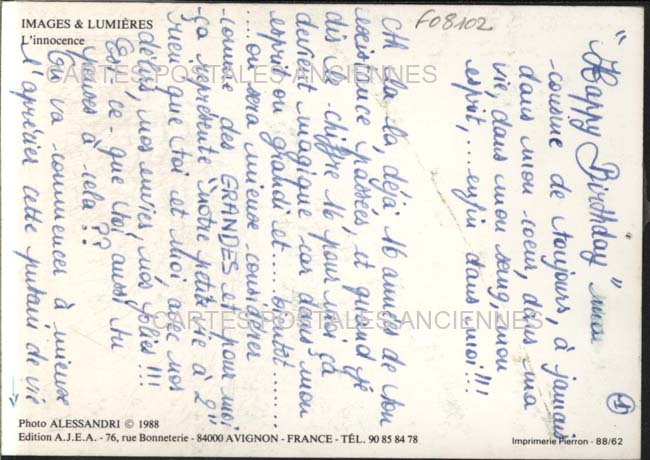 IMAGES & LUMIÈRES
L'innocence
F08102
"Happy Birthday" mia
cousine de toujours, à jamais
dans mon coeur, dans ma
vie, dans mon sang, mon
esprit,... enfin dans moi!!!
Oh la la, déjà 16 années de ton
existence passées, et quand je
dis le chiffre 16 pour moi ça
devient magique car dans mon
esprit on grandi et..... bientôt........
.... on sera mieux considérer
comme des GRANDES et pour moi
ça représente "notre petite vie à 2"
rien que toi et moi avec nos
délires, nos envies, nos folies!!!
Est-ce-que toi aussi tu
penses à cela??
On va commencer à mieux
l'aprécier cette putain de vie
1
CARTES POSTALES ANCIENNES
CARTES POSTALES ANCIENNES
Photo ALESSANDRI © 1988
Edition A.J.E.A. - 76, rue Bonneterie - 84000 AVIGNON - FRANCE - TÉL. 90 85 84 78
Imprimerie Pierron - 88/62